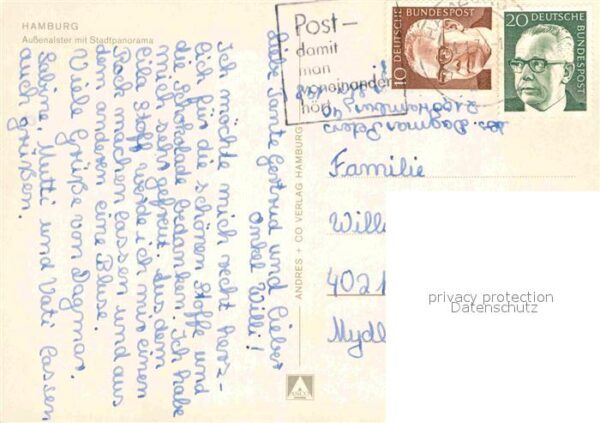 HAMBURG
Außenalster mit Stadtpanorama
Post–
damit
man
voneinander
hört
10 DEUTSCHE BUNDESPOST
20 DEUTSCHE BUNDESPOST
Liebe Tante Gertrud und lieber
Onkel Willi!
Ich möchte mich recht herz-
lich für die schönen Stoffe und
die Schokolade bedanken. Ich habe
mich sehr gefreut. Aus dem
lila Stoff werde ich mir einen
Rock machen lassen und aus
dem anderen eine Bluse.
Viele Grüße von Dagmar.
Sabine, Mutti und Vati lassen
auch grüßen.
ANDRES + CO VERLAG HAMBURG
Abs. Dagmar
Hamburg
Familie
Willi
4021
Mydl
privacy protection
Datenschutz